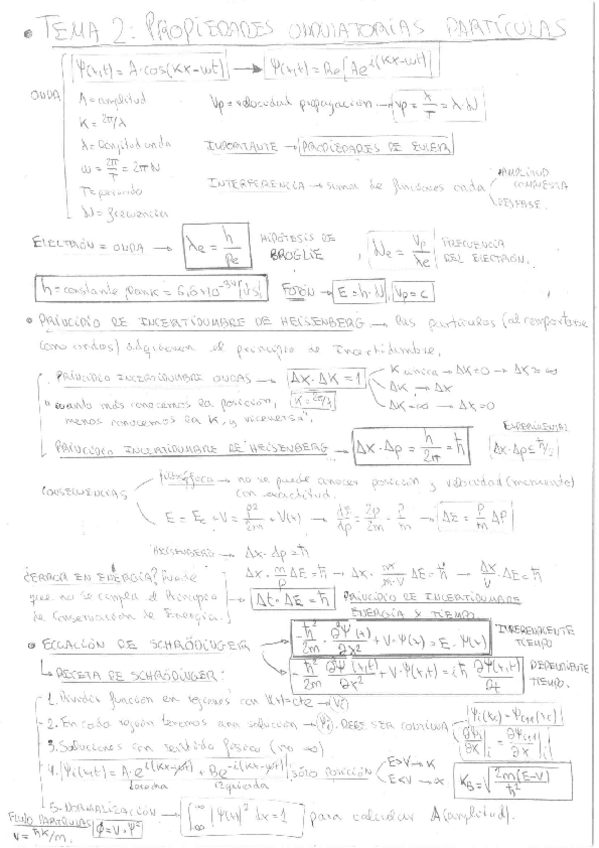 • TEMA 2: PROPIEDADES ONDULATORIAS PARTÍCULAS
ONDA
Ψ(x,t) = A·cos(Kx-ωt) → Ψ(x,t) = Re[Ae^i(Kx-ωt)]
A = amplitud
K = 2π/λ
λ = longitud onda
ω = 2π/T = 2πν
T = periodo
ν = frecuencia
Vp = velocidad propagación → Vp = λ/T = λ·ν
IMPORTANTE → PROPIEDADES DE EULER
INTERFERENCIA → suma de funciones onda
AMPLITUD COMPUESTA
DESFASE.
ELECTRÓN = ONDA → λe = h/pe HIPÓTESIS DE BROGLIE, νe = Vp/λe FRECUENCIA DEL ELECTRÓN.
h = constante Planck = 6,6·10^-34 [J·s] FOTÓN → E = h·ν, Vp = c
• PRINCIPIO DE INCERTIDUMBRE DE HEISENBERG → las partículas (al comportarse
como ondas) adquieren el principio de incertidumbre.
PRINCIPIO INCERTIDUMBRE ONDAS → Δx·ΔK = 1
K única → ΔK=0 → Δx ≈ ∞
ΔK → Δx
ΔK → ∞ → Δx = 0
K = 2π/λ
"cuanto más conocemos la posición,
menos conocemos la K, y viceversa".
PRINCIPIO INCERTIDUMBRE DE HEISENBERG → Δx·Δp = h/2π = ħ
EXPERIMENTAL
Δx·Δp ≤ ħ/2
CONSECUENCIAS
filosófica → no se puede conocer posición y velocidad (momento)
con exactitud.
E = Ec + V = p²/2m + V(x) → dE/dp = 2p/2m = p/m → ΔE = p/m Δp
HEISENBERG → Δx·Δp = ħ
Δx · m/p ΔE = ħ → Δx · m/m·V ΔE = ħ → Δx/V · ΔE = ħ
¿ERROR EN ENERGÍA? Puede
que no se cumpla el Principio
de Conservación de Energía.
Δt·ΔE = ħ PRINCIPIO DE INCERTIDUMBRE
ENERGÍA x TIEMPO
• ECUACIÓN DE SCHRÖDINGER
-ħ²/2m · ∂²Ψ(x)/∂x² + V·Ψ(x) = E·Ψ(x) INDEPENDIENTE TIEMPO
-ħ²/2m · ∂²Ψ(x,t)/∂x² + V·Ψ(x,t) = iħ ∂Ψ(x,t)/∂t DEPENDIENTE TIEMPO.
RECETA DE SCHRÖDINGER:
1. Dividir función en regiones con V(x)=cte → Vi
2. En cada región tenemos una solución → Ψi. DEBE SER CONTINUA
Ψi(xc) = Ψi+1(xc)
∂Ψi/∂x |i = ∂Ψi+1/∂x |i
3. Soluciones con sentido físico (no ∞)
4. Ψi(x,t) = A·e^i(Kx-ωt) + Be^-i(Kx-ωt) SÓLO POSICIÓN
derecha izquierda
E>V → K
E<V → α
K = √2m(E-V)/ħ²
5. NORMALIZACIÓN → ∫ |Ψ(x)|² dx = 1 para calcular A (amplitud).
FLUJO PARTÍCULAS
V = ħK/m. Φ = V·Ψ²